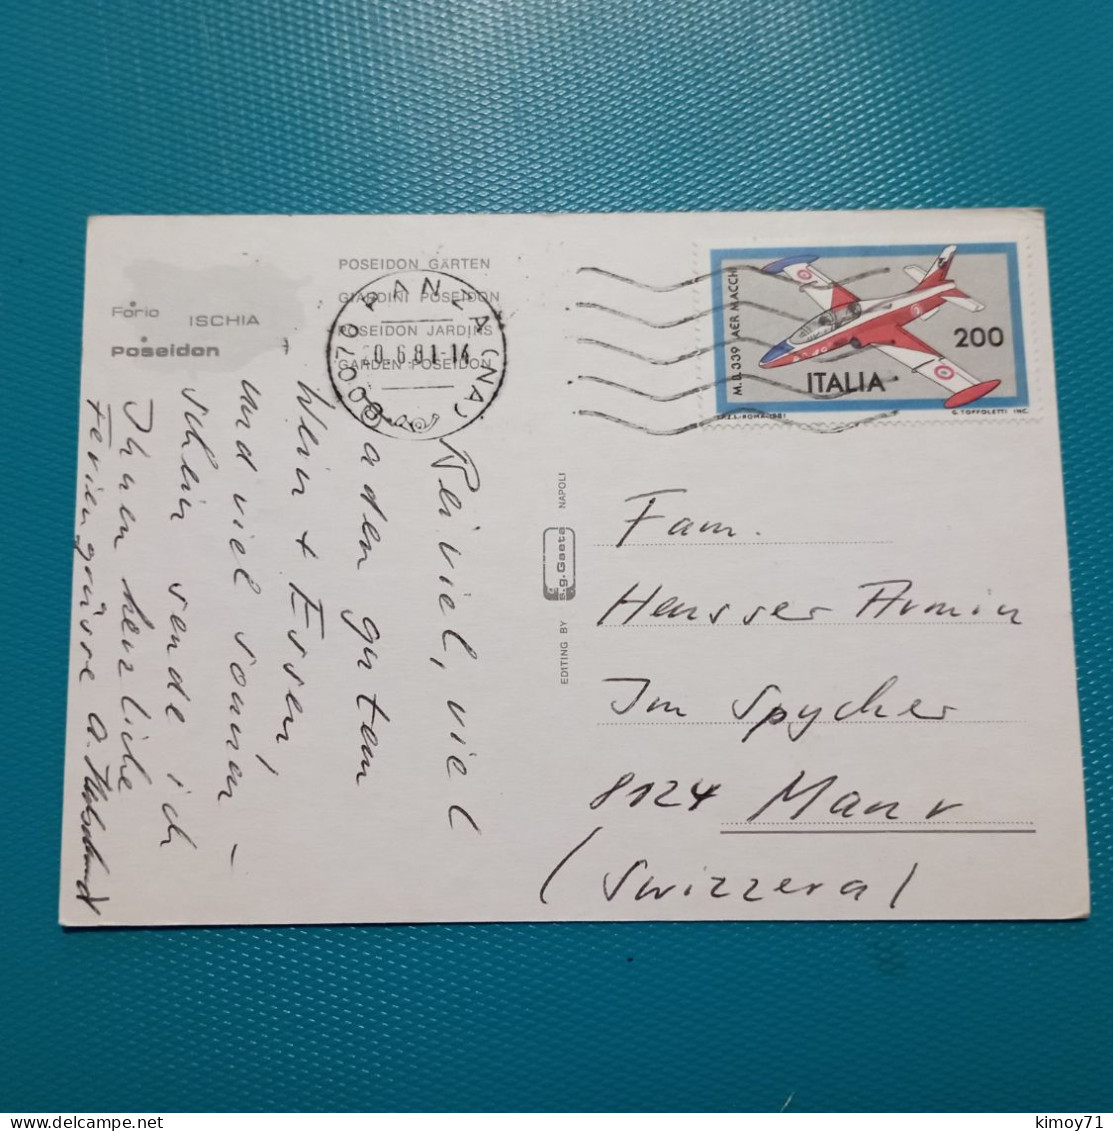 Forio ISCHIA
Poseidon
POSEIDON GÄRTEN
GIARDINI POSEIDON
POSEIDON JARDINS
GARDEN POSEIDON
0.6.81-14
(NA)
M.B.339 AER MACCHI
200
ITALIA
I.P.Z.S.-ROMA-1981
G. TOFFOLETTI INC.
Bei viel, viel
Baden gutem
Wein + Essen!
und viel sonnen-
schein sende ich
Ihnen herzliche
Feriengrüsse A.
EDITING BY s.g. Gaeta NAPOLI
Fam.
Heusser Armin
Im Spycher
8124 Maur
(Svizzera)
kimoy71